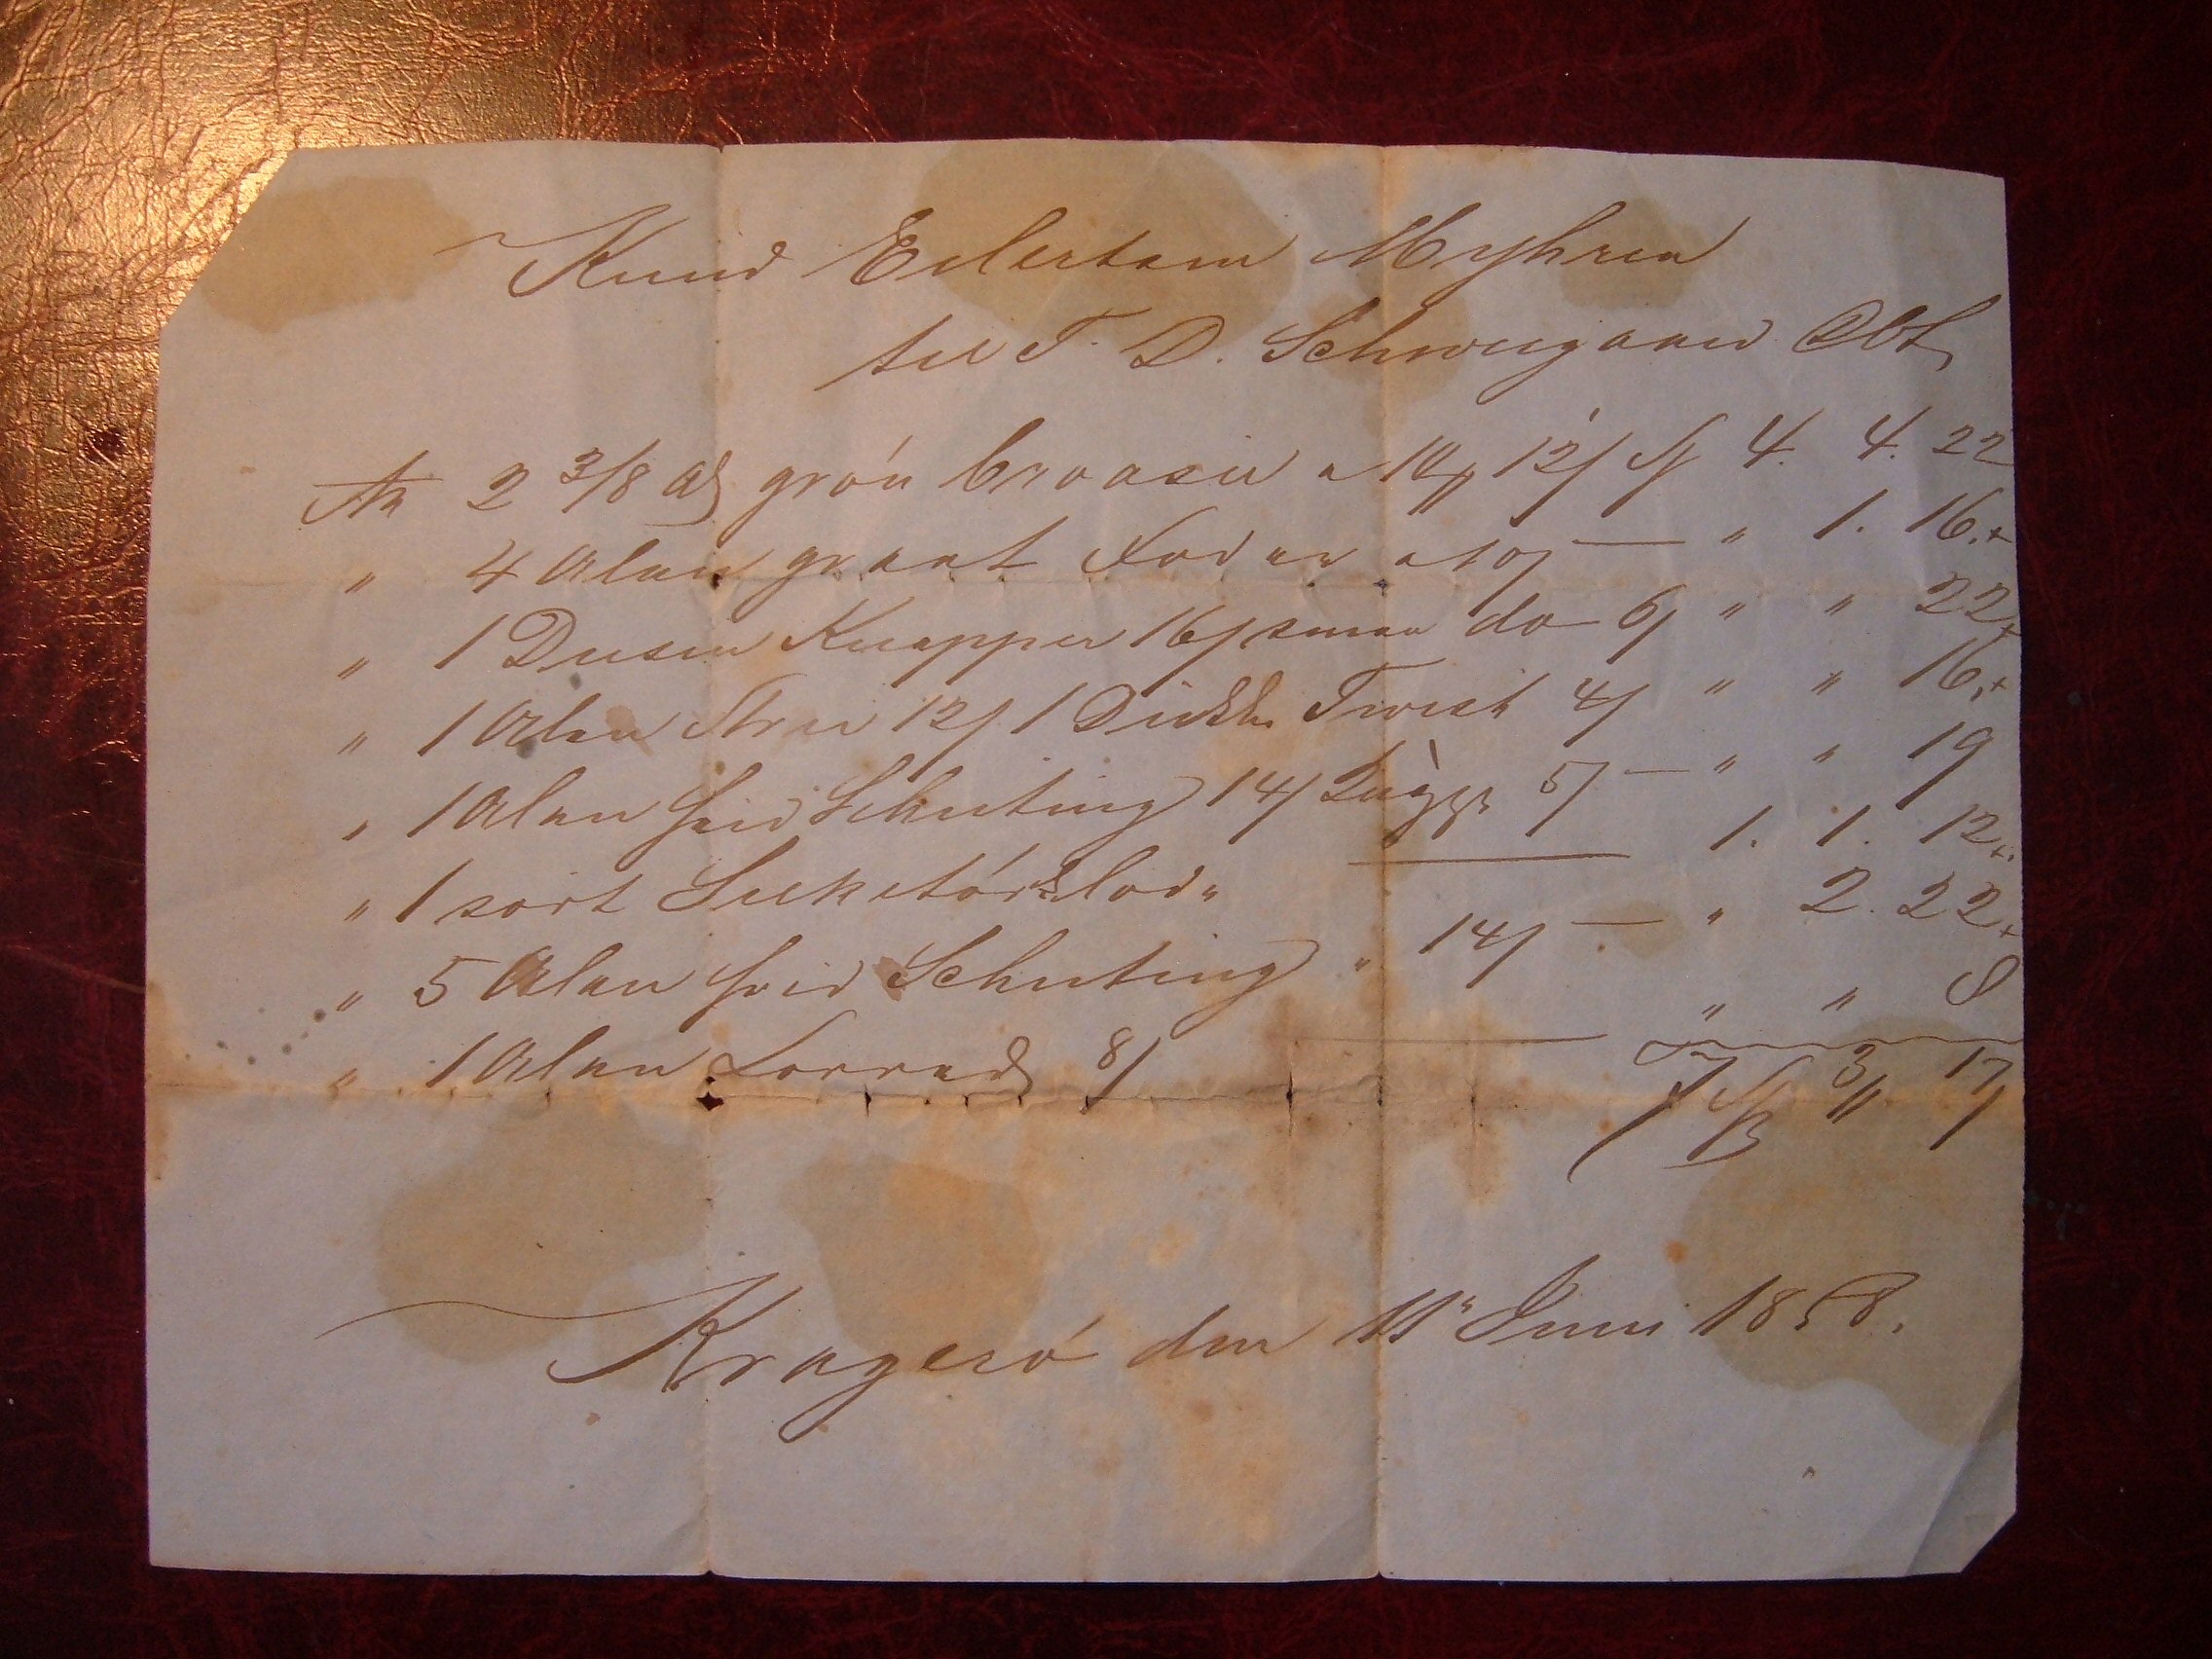 Knud Eilertsen Myhren
til T. D. Schweigaard Dbt
An 2 3/8 Al grön 10 12/ 4. 4. 22
" 4 Alen graat Foder a 10/ — " 1. 16.+
" 1 Dusin Knapper 16/ smaa do 6/ " " 22+
" 1 Alen 12/ 1 Dukke Twist 4/ " " 16.+
" 1 Alen hvid Schirting 14/ 5/ — " " 19
" 1 sort Silketörklæde 1. 1. 12+
" 5 Alen hvid Schirting " 14/ — " 2. 22+
" 1 Alen Lærred 8/ " " 8
7 3 17/
Krageröe den 11 Juni 1858.